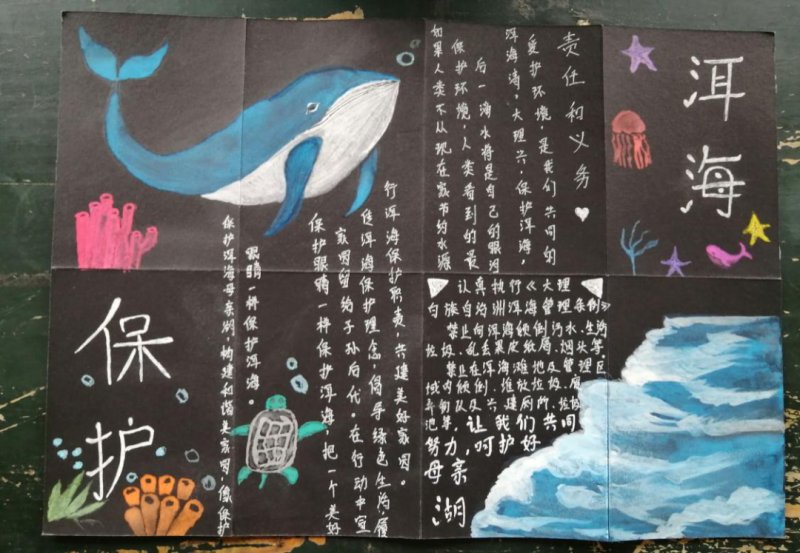 洱海
保护
如果人类不从现在家节约水源
保护环境，人类看到的最
后一滴水将是自己的眼泪
洱海清、大理兴，保护洱海，
爱护环境，是我们共同的
责任和义务
保护洱海母亲湖，构建和谐美家园，像保护
眼睛一样保护洱海。
保护眼睛一样保护洱海，把一个美好
家园留给子孙后代。在行动中宣
传洱海保护理念，倡导绿色生活，履
行洱海保护职责，共建美好家园。
认真执行《大理
白族自治洲洱海管理条例》
禁止向洱海倾倒污水、生活
垃圾、乱丢果皮纸屑、烟头等，
禁止在洱海滩地及管理区
域内倾倒、堆放垃圾、
弃物以及兴建厕所、垃圾
池等，让我们共同
努力，呵护好
母亲
湖